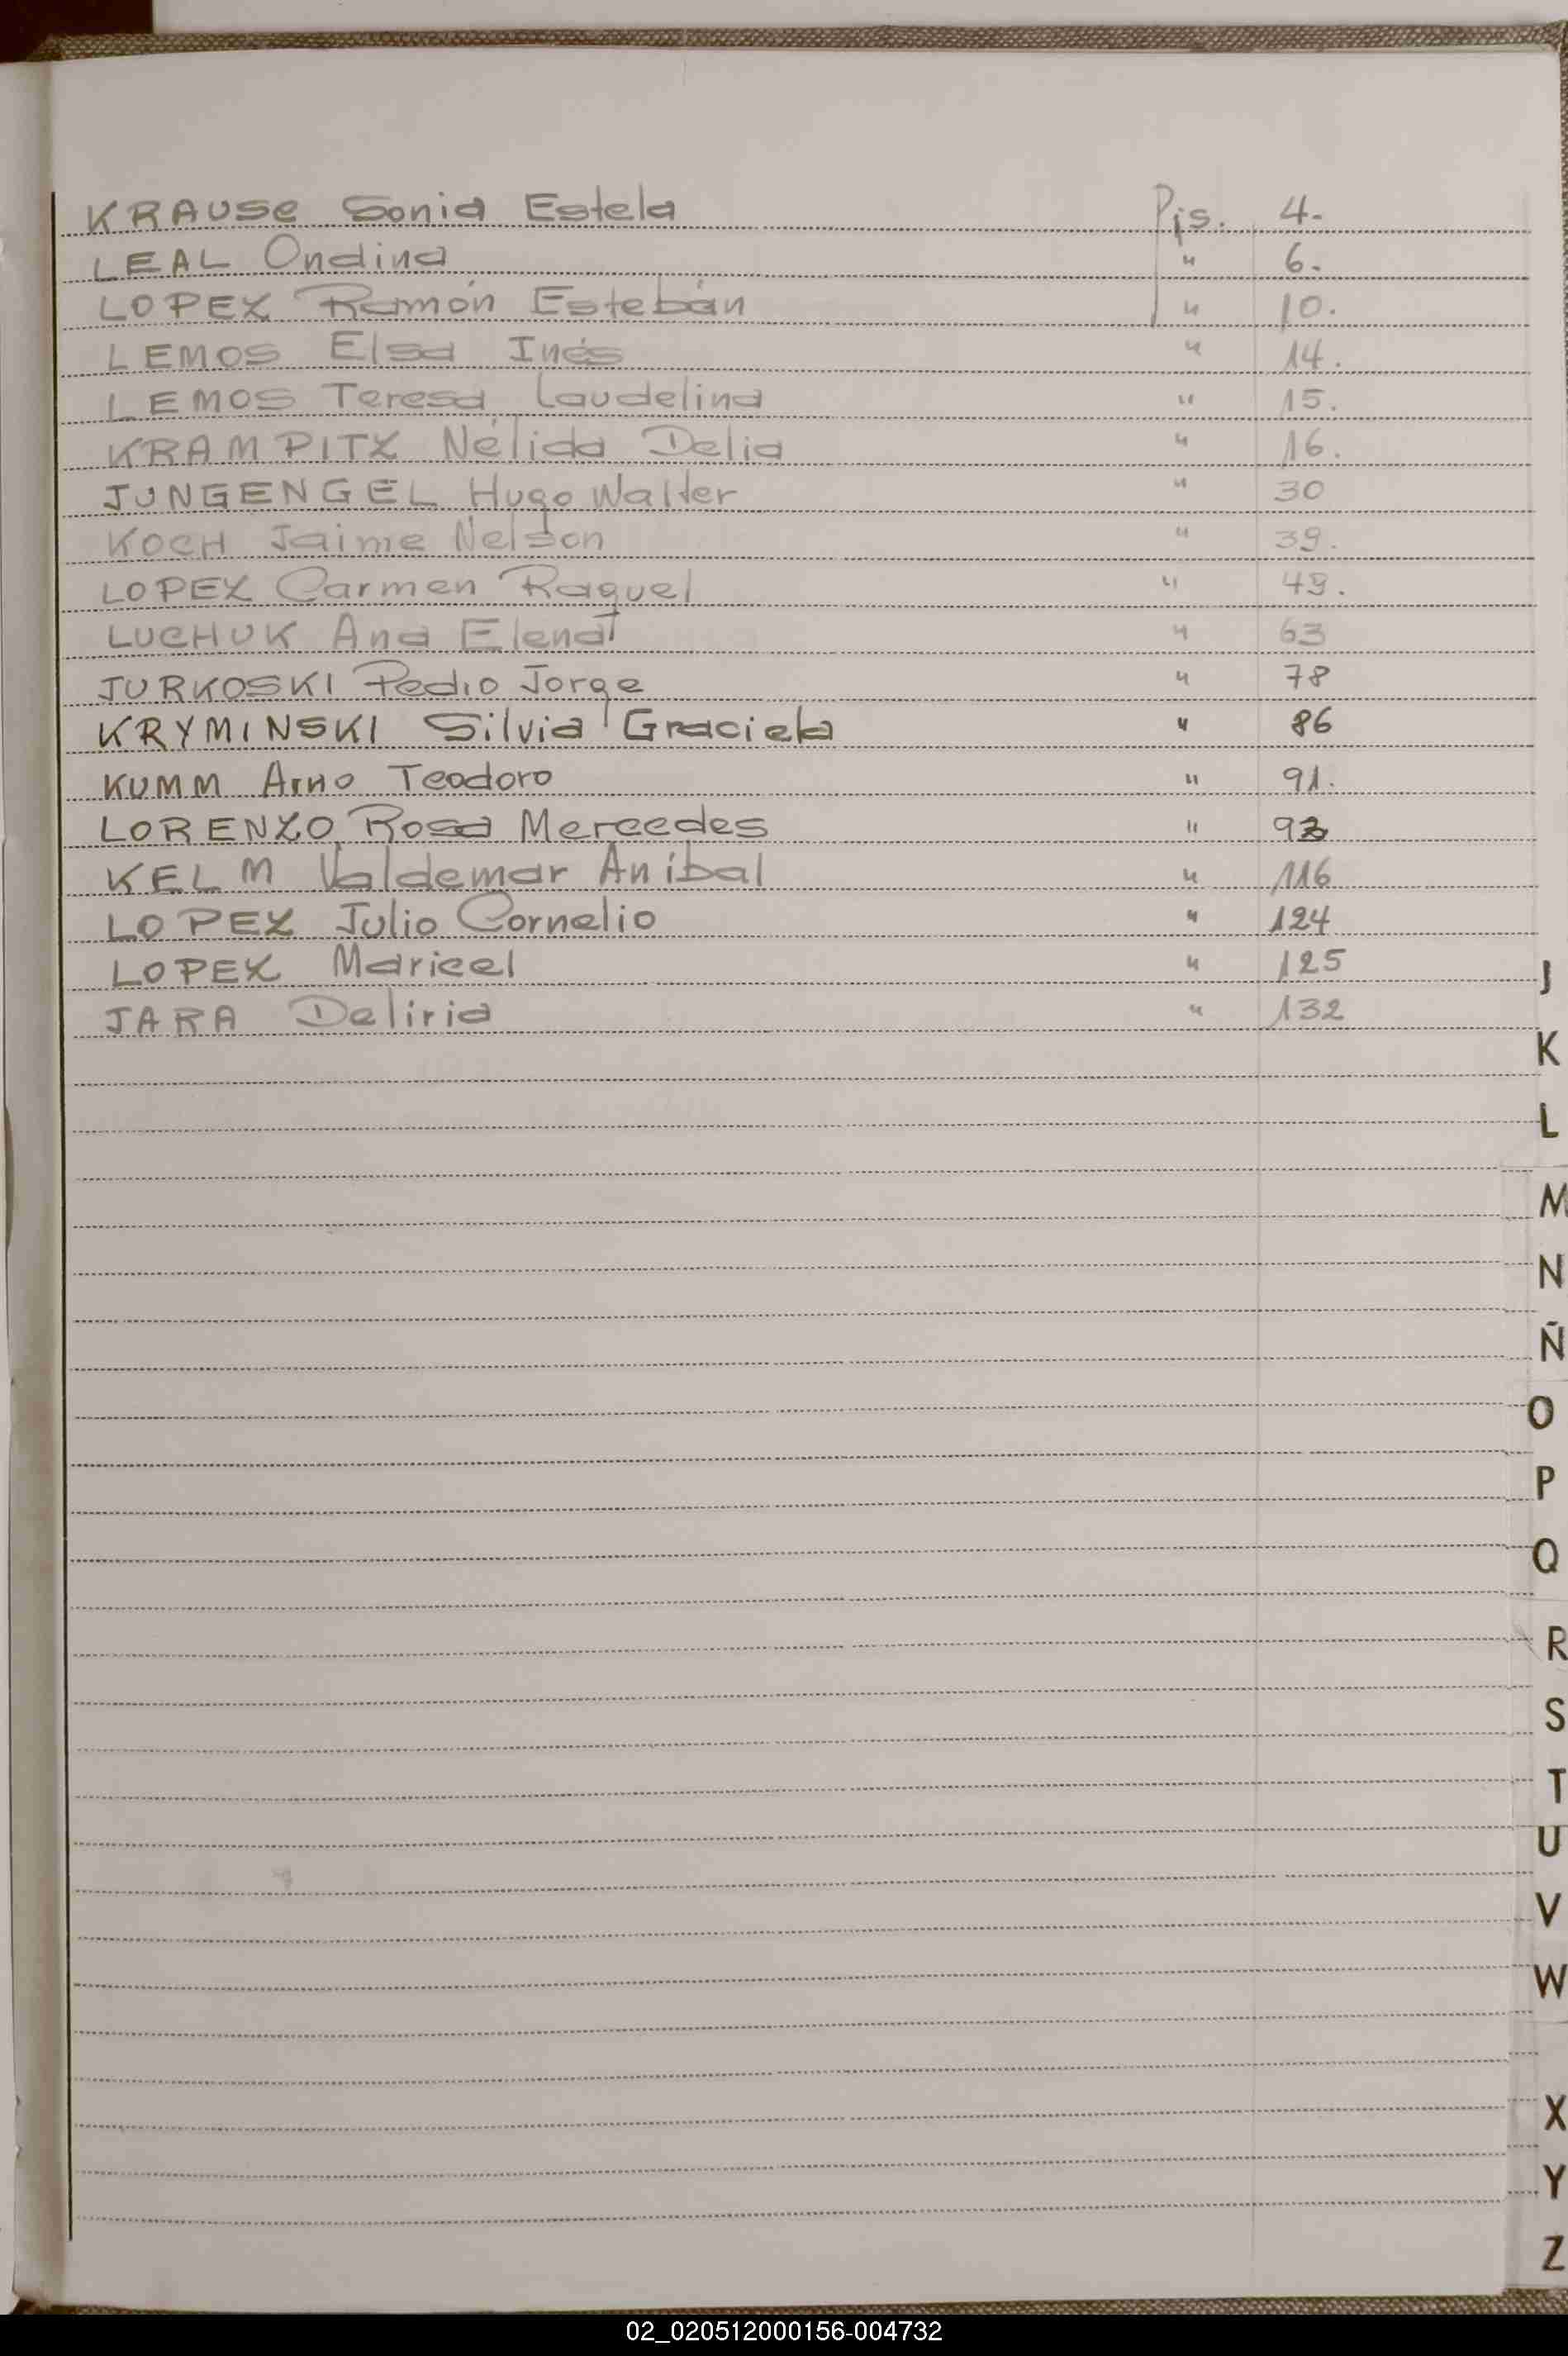 KRAUSE Sonia Estela Pjs. 4.
LEAL Ondina " 6.
LOPEZ Ramón Estebán " 10.
LEMOS Elsa Inés " 14.
LEMOS Teresa Laudelina " 15.
KRAMPITZ Nélida Delia " 16.
JUNGENGEL Hugo Walter " 30
KOCH Jaime Nelson " 39.
LOPEZ Carmen Raquel " 49.
LUCHUK Ana Elena " 63
JURKOSKI Pedro Jorge " 78
KRYMINSKI Silvia Graciela " 86
KUMM Arno Teodoro " 91.
LORENZO Rosa Mercedes " 93
KELM Valdemar Aníbal " 116
LOPEZ Julio Cornelio " 124
LOPEZ Maricel " 125
JARA Deliria " 132
J
K
L
M
N
Ñ
O
P
Q
R
S
T
U
V
W
X
Y
Z
02_020512000156-004732